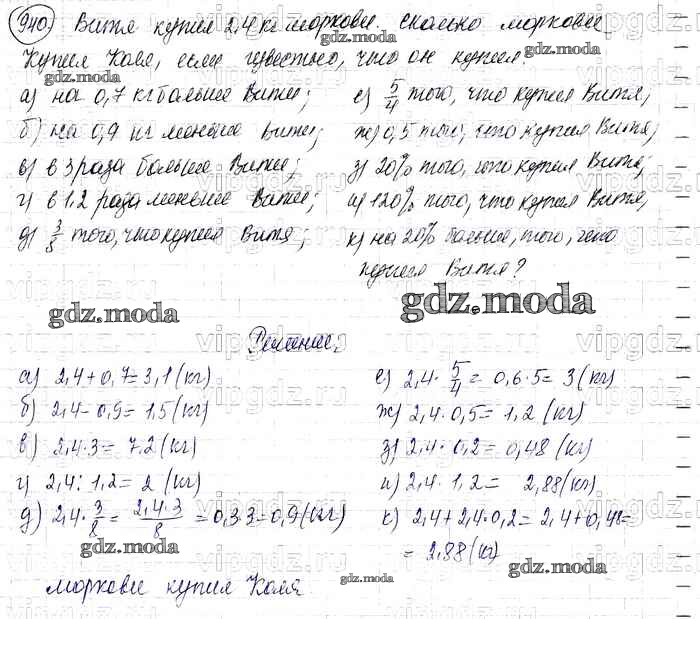 940 Витя купил 2,4 кг моркови. Сколько моркови
купил Коля, если известно, что он купил:
gdz.moda
gdz.moda
а) на 0,7 кг больше Вити;
е) 5/4 того, что купил Витя;
б) на 0,9 кг меньше Вити;
ж) 0,5 того, что купил Витя;
в) в 3 раза больше Вити;
з) 20% того, что купил Витя;
г) в 1,2 раза меньше Вити;
и) 120% того, что купил Витя,
д) 3/8 того, что купил Витя;
к) на 20% больше, того, чего
купил Витя?
gdz.moda
gdz.moda
Решение.
а) 2,4 + 0,7 = 3,1 (кг)
е) 2,4 · 5/4 = 0,6 · 5 = 3 (кг)
б) 2,4 - 0,9 = 1,5 (кг)
ж) 2,4 · 0,5 = 1,2 (кг)
в) 2,4 · 3 = 7,2 (кг)
з) 2,4 · 0,2 = 0,48 (кг)
г) 2,4 : 1,2 = 2 (кг)
и) 2,4 · 1,2 = 2,88 (кг)
д) 2,4 · 3/8 = 2,4·3/8 = 0,3·3 = 0,9 (кг)
к) 2,4 + 2,4·0,2 = 2,4 + 0,48 =
= 2,88 (кг)
gdz.moda
gdz.moda
gdz.moda
моркови купил Коля